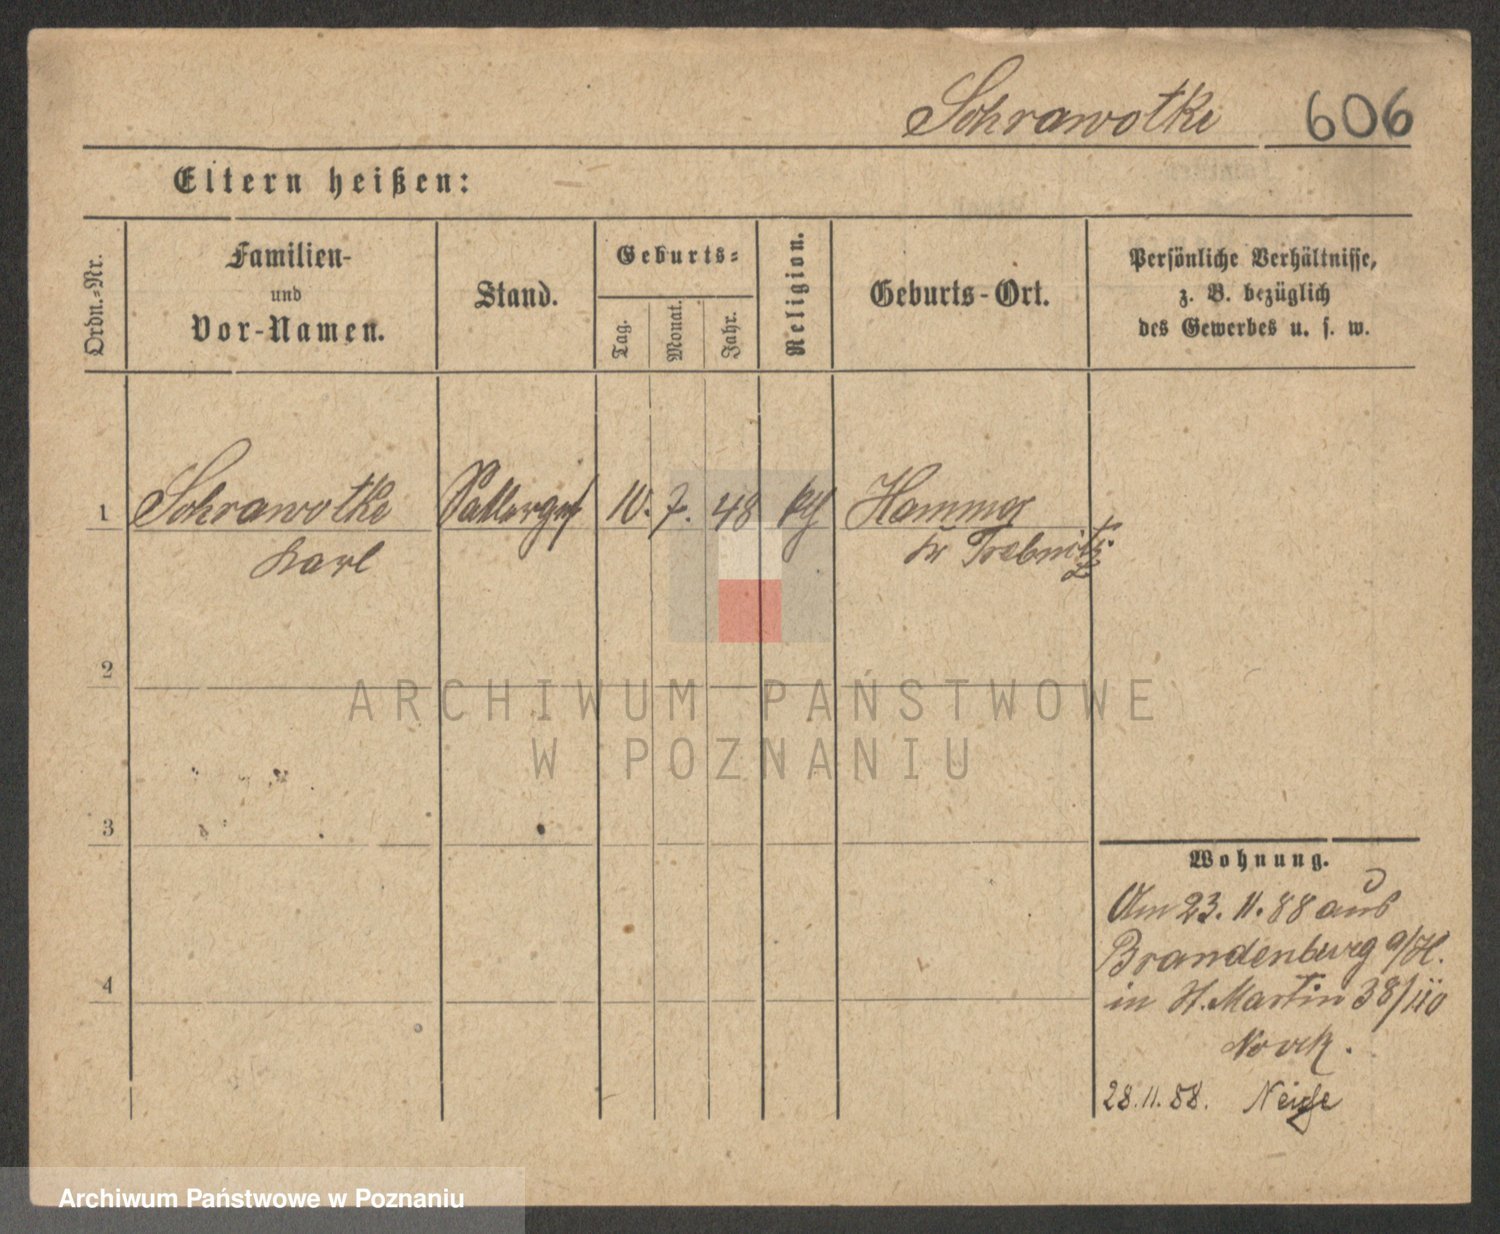 Schrawotke 606
Eltern heißen:
Ordn.-Nr.
Familien-
und
Vor-Namen.
Stand.
Geburts-
Tag.
Monat.
Jahr.
Religion.
Geburts-Ort.
Persönliche Verhältnisse,
z. B. bezüglich
des Gewerbes u. s. w.
1 Schrawotke Sattlerges 10. 7. 48 Hammer
Karl Kr Trebnitz
2
ARCHIWUM PAŃSTWOWE
W POZNANIU
3
Wohnung.
Am 23. 11. 88 aus
Brandenburg a/H.
in St. Martin 38/
4
28. 11. 88. Neiße
Archiwum Państwowe w Poznaniu